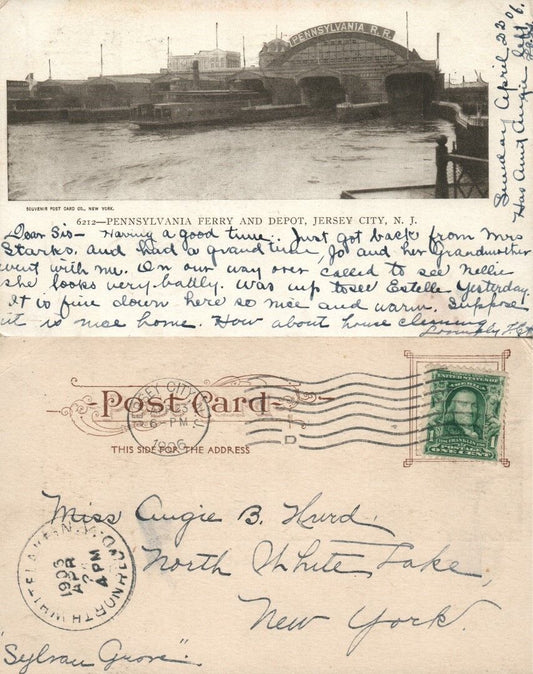 PENNSYLVANIA R.R.
Sunday April 22 06.
Has Aunt Angie left
SOUVENIR POST CARD CO., NEW YORK.
6212—PENNSYLVANIA FERRY AND DEPOT, JERSEY CITY, N. J.
Dear Sis— Having a good time. Just got back from Mrs
Starks, and had a grand time, Jo and her Grandmother
went with me. On our way over called to see Nellie
she looks very badly. Was up to see Estelle Yesterday.
It is fine down here so nice and warm. Suppose
it is nice home. How about house cleaning
Post Card
JERSEY CITY, N.J.
6-PM
1906
D
THIS SIDE FOR THE ADDRESS
UNITED STATES OF AMERICA
1 1
ONE CENT
Miss Angie B. Hurd.
North White Lake,
New York.
NORTH WHITE LAKE, N.Y.
APR
4 PM
REC'D
"Sylvan Grove".